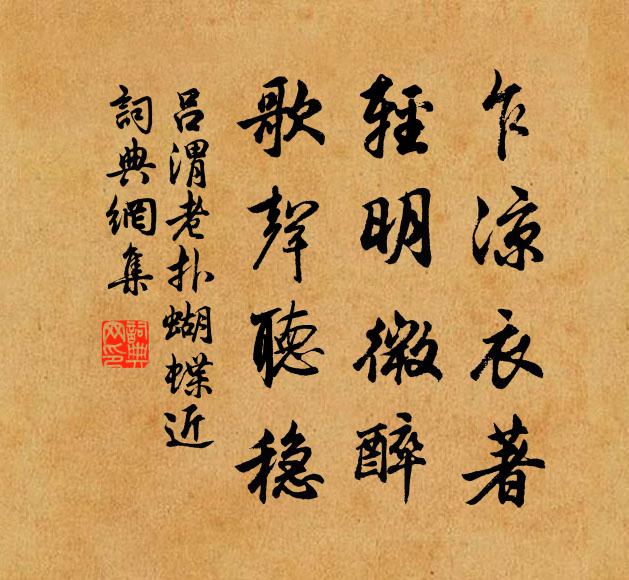 乍涼衣著
輕明微醉
歌聲聽稳
吕渭老扑蝴蝶近
詞典網集
詞典
网印